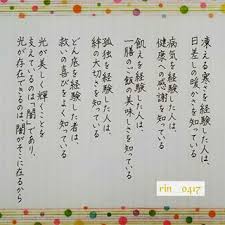 凍える寒さを経験した人は、
日差しの暖かさを知っている
病気を経験した人は、
健康への感謝を知っている
飢えを経験した人は、
一膳のご飯の美味しさを知っている
孤独を経験した人は、
絆の大切さを知っている
どん底を経験した者は
救いの喜びをよく知っている
光が美しく輝くことを
支えているのは「闇」であり、
光が存在できるのは、闇がそこに在るから
rin__0417